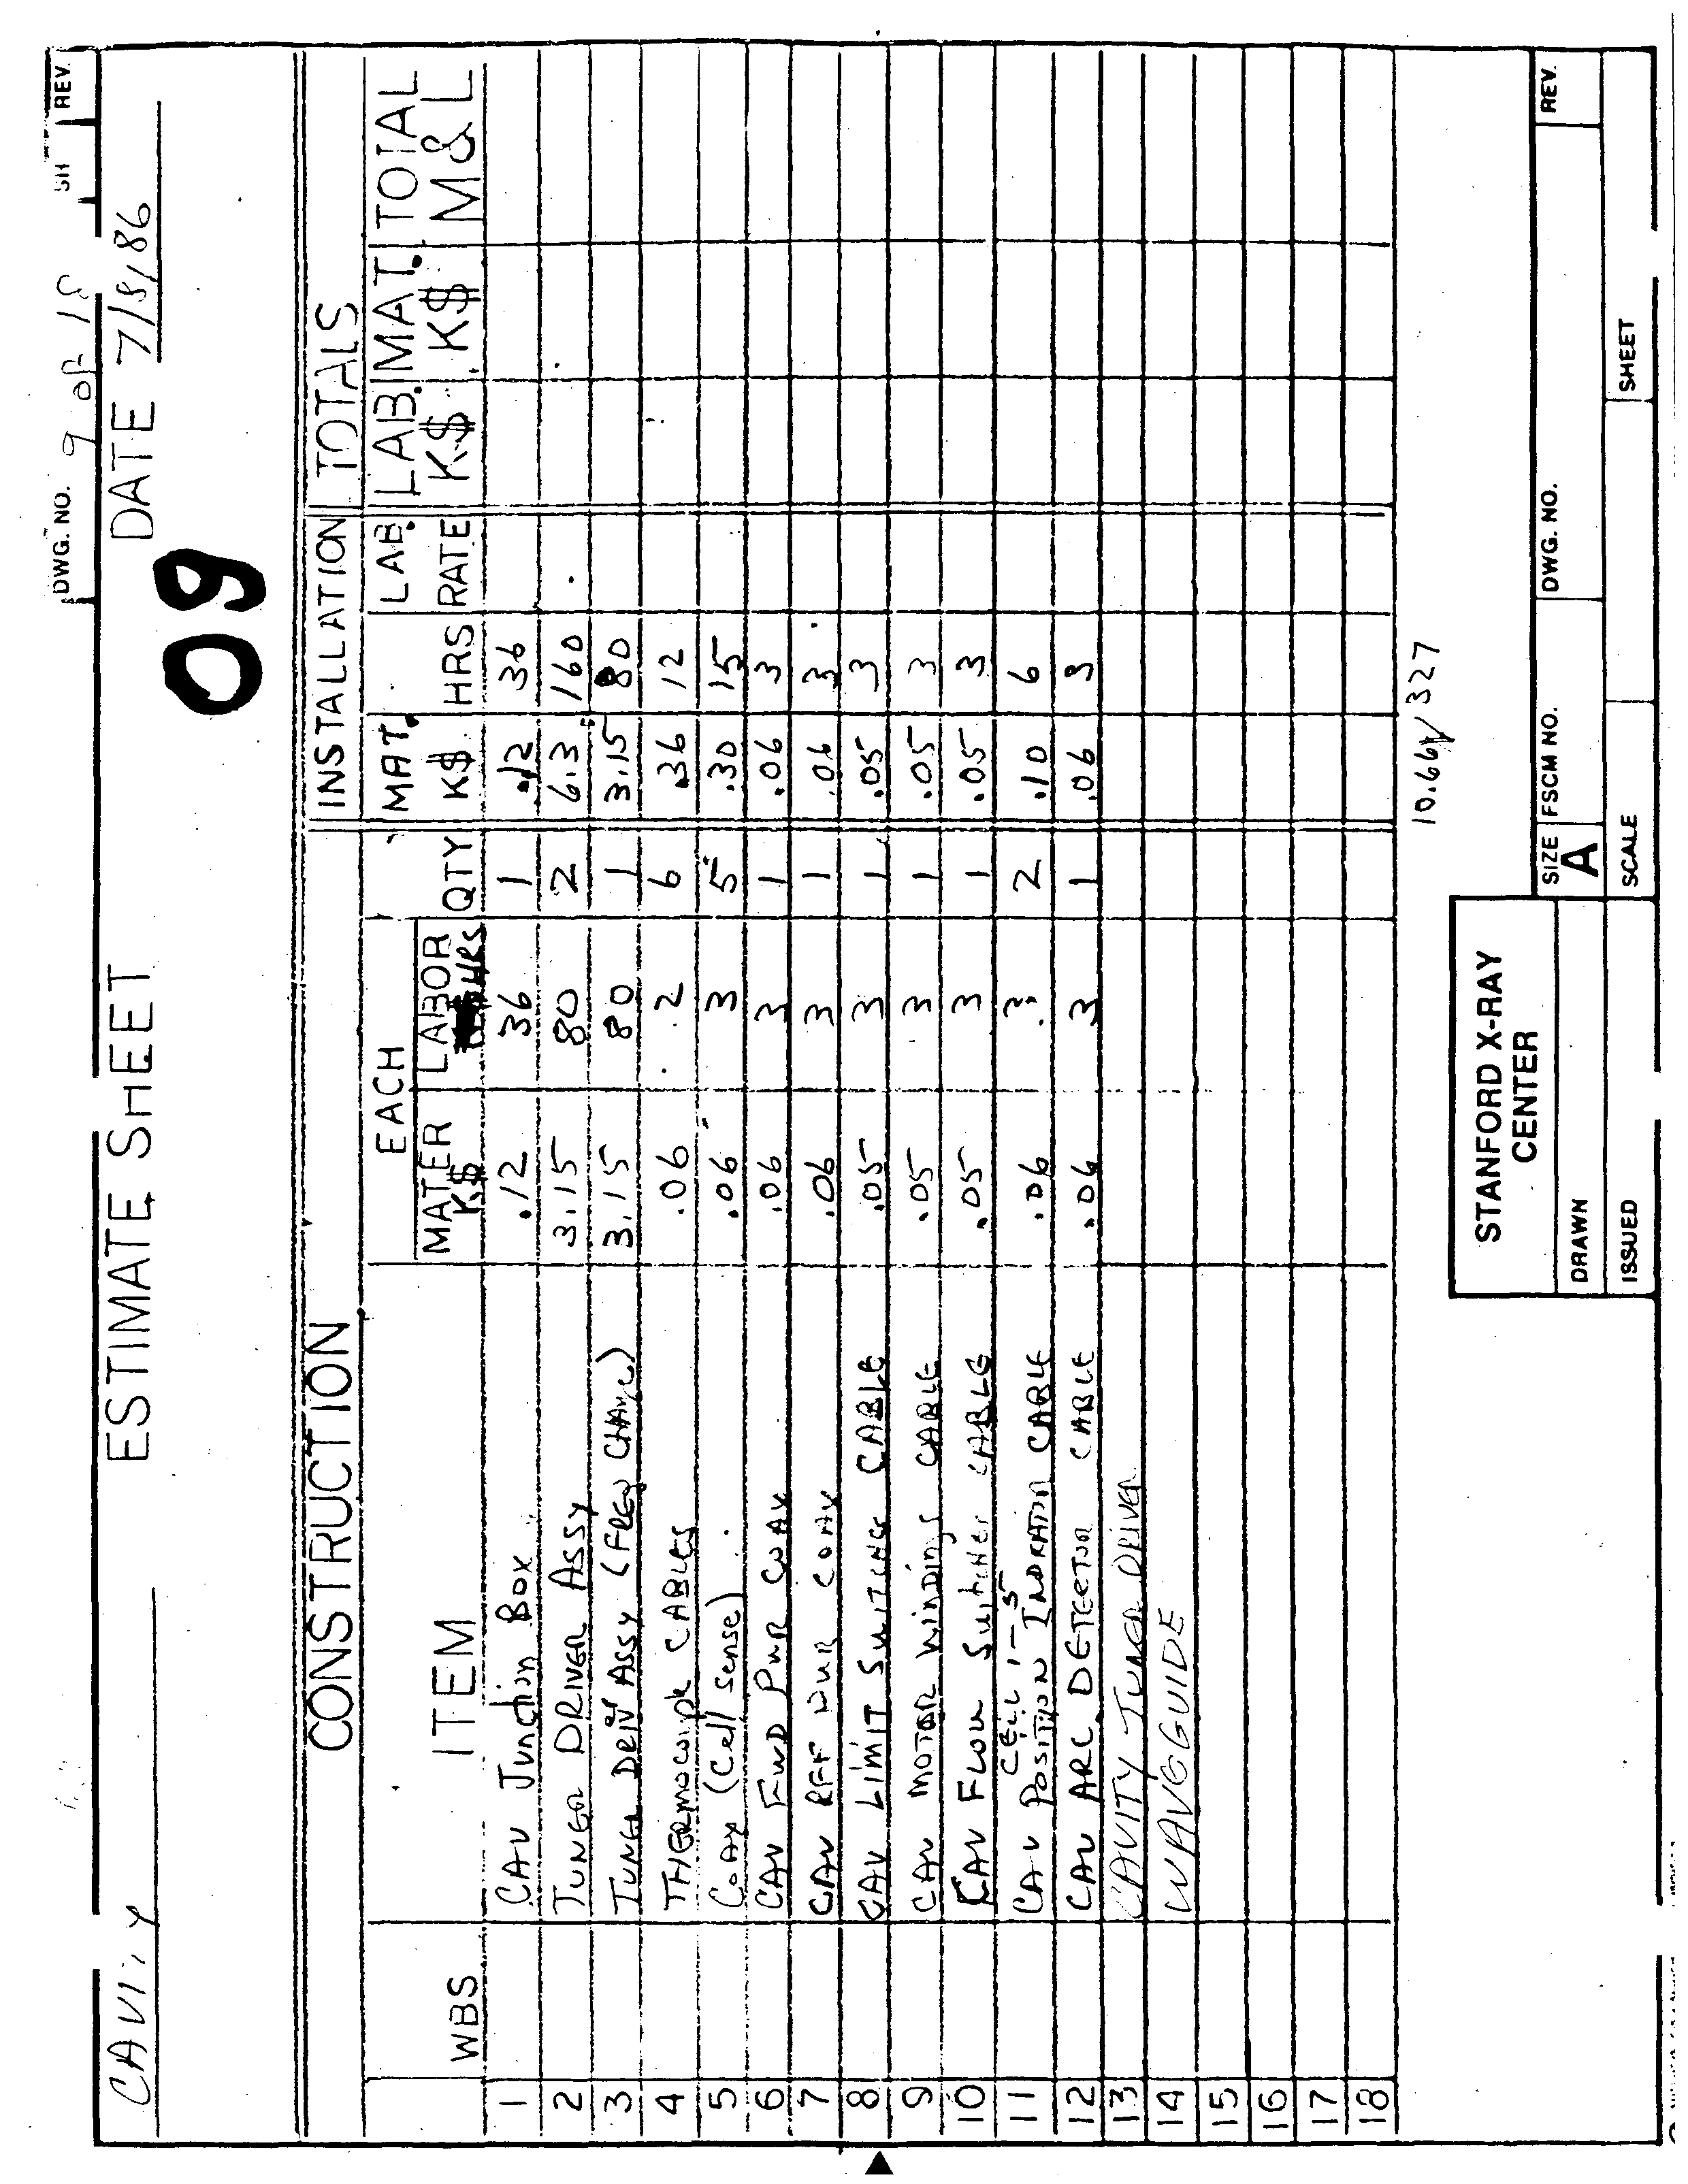 DWG. NO. 9 OF 18 SH REV.
CAVITY ESTIMATE SHEET DATE 7/8/86
09
CONSTRUCTION INSTALLATION TOTALS
WBS ITEM EACH MATER K$ LABOR HRS QTY MAT. K$ HRS LAB. RATE LAB. K$ MAT. K$ TOTAL M&L
1 CAV Junction Box .12 36 1 .12 36
2 TUNER DRIVER ASSY 3.15 80 2 6.3 160
3 TUNER DRIV ASSY (FREQ CHANGE) 3.15 80 1 3.15 80
4 THERMOCOUPLE CABLES .06 2 6 .36 12
5 COAX (Cell sense) .06 3 5 .30 15
6 CAV FWD PWR COAX .06 3 1 .06 3
7 CAV REF PWR COAX .06 3 1 .06 3
8 CAV LIMIT SWITCHES CABLE .05 3 1 .05 3
9 CAV MOTOR WINDINGS CABLE .05 3 1 .05 3
10 CAV FLOW Switches CABLE .05 3 1 .05 3
CELL 1-5
11 CAV POSITION INDICATION CABLE .06 3 2 .10 6
12 CAV ARC DETECTOR CABLE .06 3 1 .06 3
13 CAVITY TUNER DRIVER
14 WAVEGUIDE
15
16
17
18
10.66/327
STANFORD X-RAY
CENTER
SIZE A FSCM NO. DWG. NO. REV.
DRAWN
ISSUED SCALE SHEET